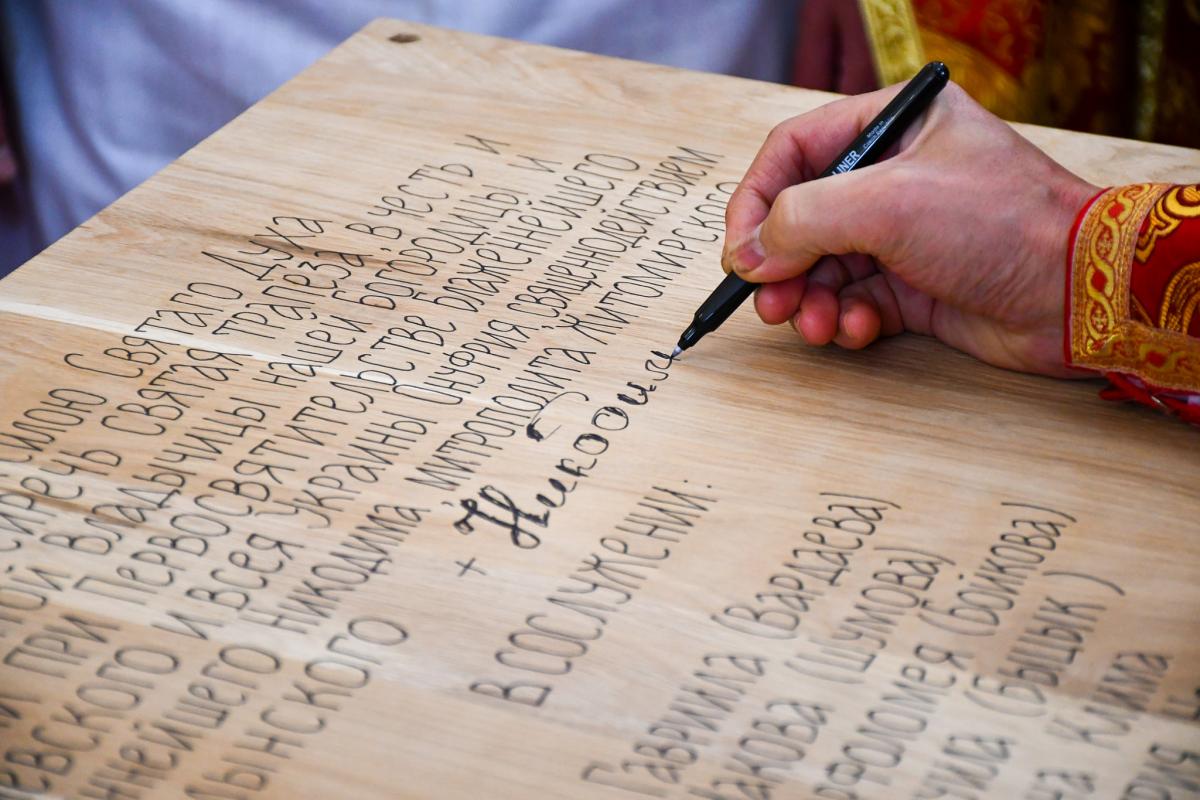 силою Святаго Духа
сиречь святая трапеза, в честь и
Владычицы нашей Богородицы и
при Первосвятительстве Блаженнейшего
и всея Украины Онуфрия священнодействием
Никодима митрополита Житомирского
+ Никодим
В сослужении:
Гавриила (Вардаева)
(Шумова)
(Бойкова)
(Быцык)
Клима
LINER
Made in